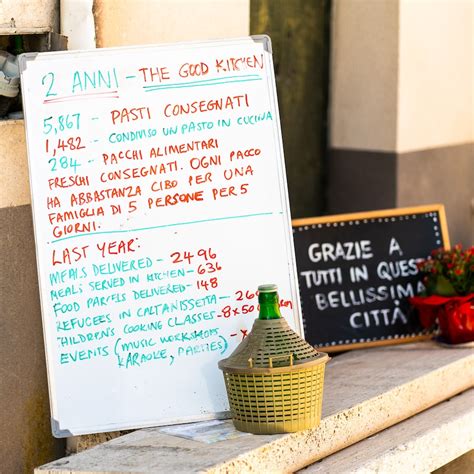 2 ANNI - THE GOOD KITCHEN
5,867 - PASTI CONSEGNATI
1,482 - CONDIVISO UN PASTO IN CUCINA
284 - PACCHI ALIMENTARI
FRESCHI CONSEGNATI. OGNI PACCO
HA ABBASTANZA CIBO PER UNA
FAMIGLIA DI 5 PERSONE PER 5
GIORNI.
LAST YEAR:
MEALS DELIVERED - 2496
MEALS SERVED IN KITCHEN - 636
FOOD PARCELS DELIVERED - 148
REFUGEES IN CALTANISSETTA -
CHILDREN'S COOKING CLASSES - 8 x 50
EVENTS (MUSIC WORKSHOPS,
KARAOKE, PARTIES)
GRAZIE A
TUTTI IN QUESTA
BELLISSIMA
CITTÀ